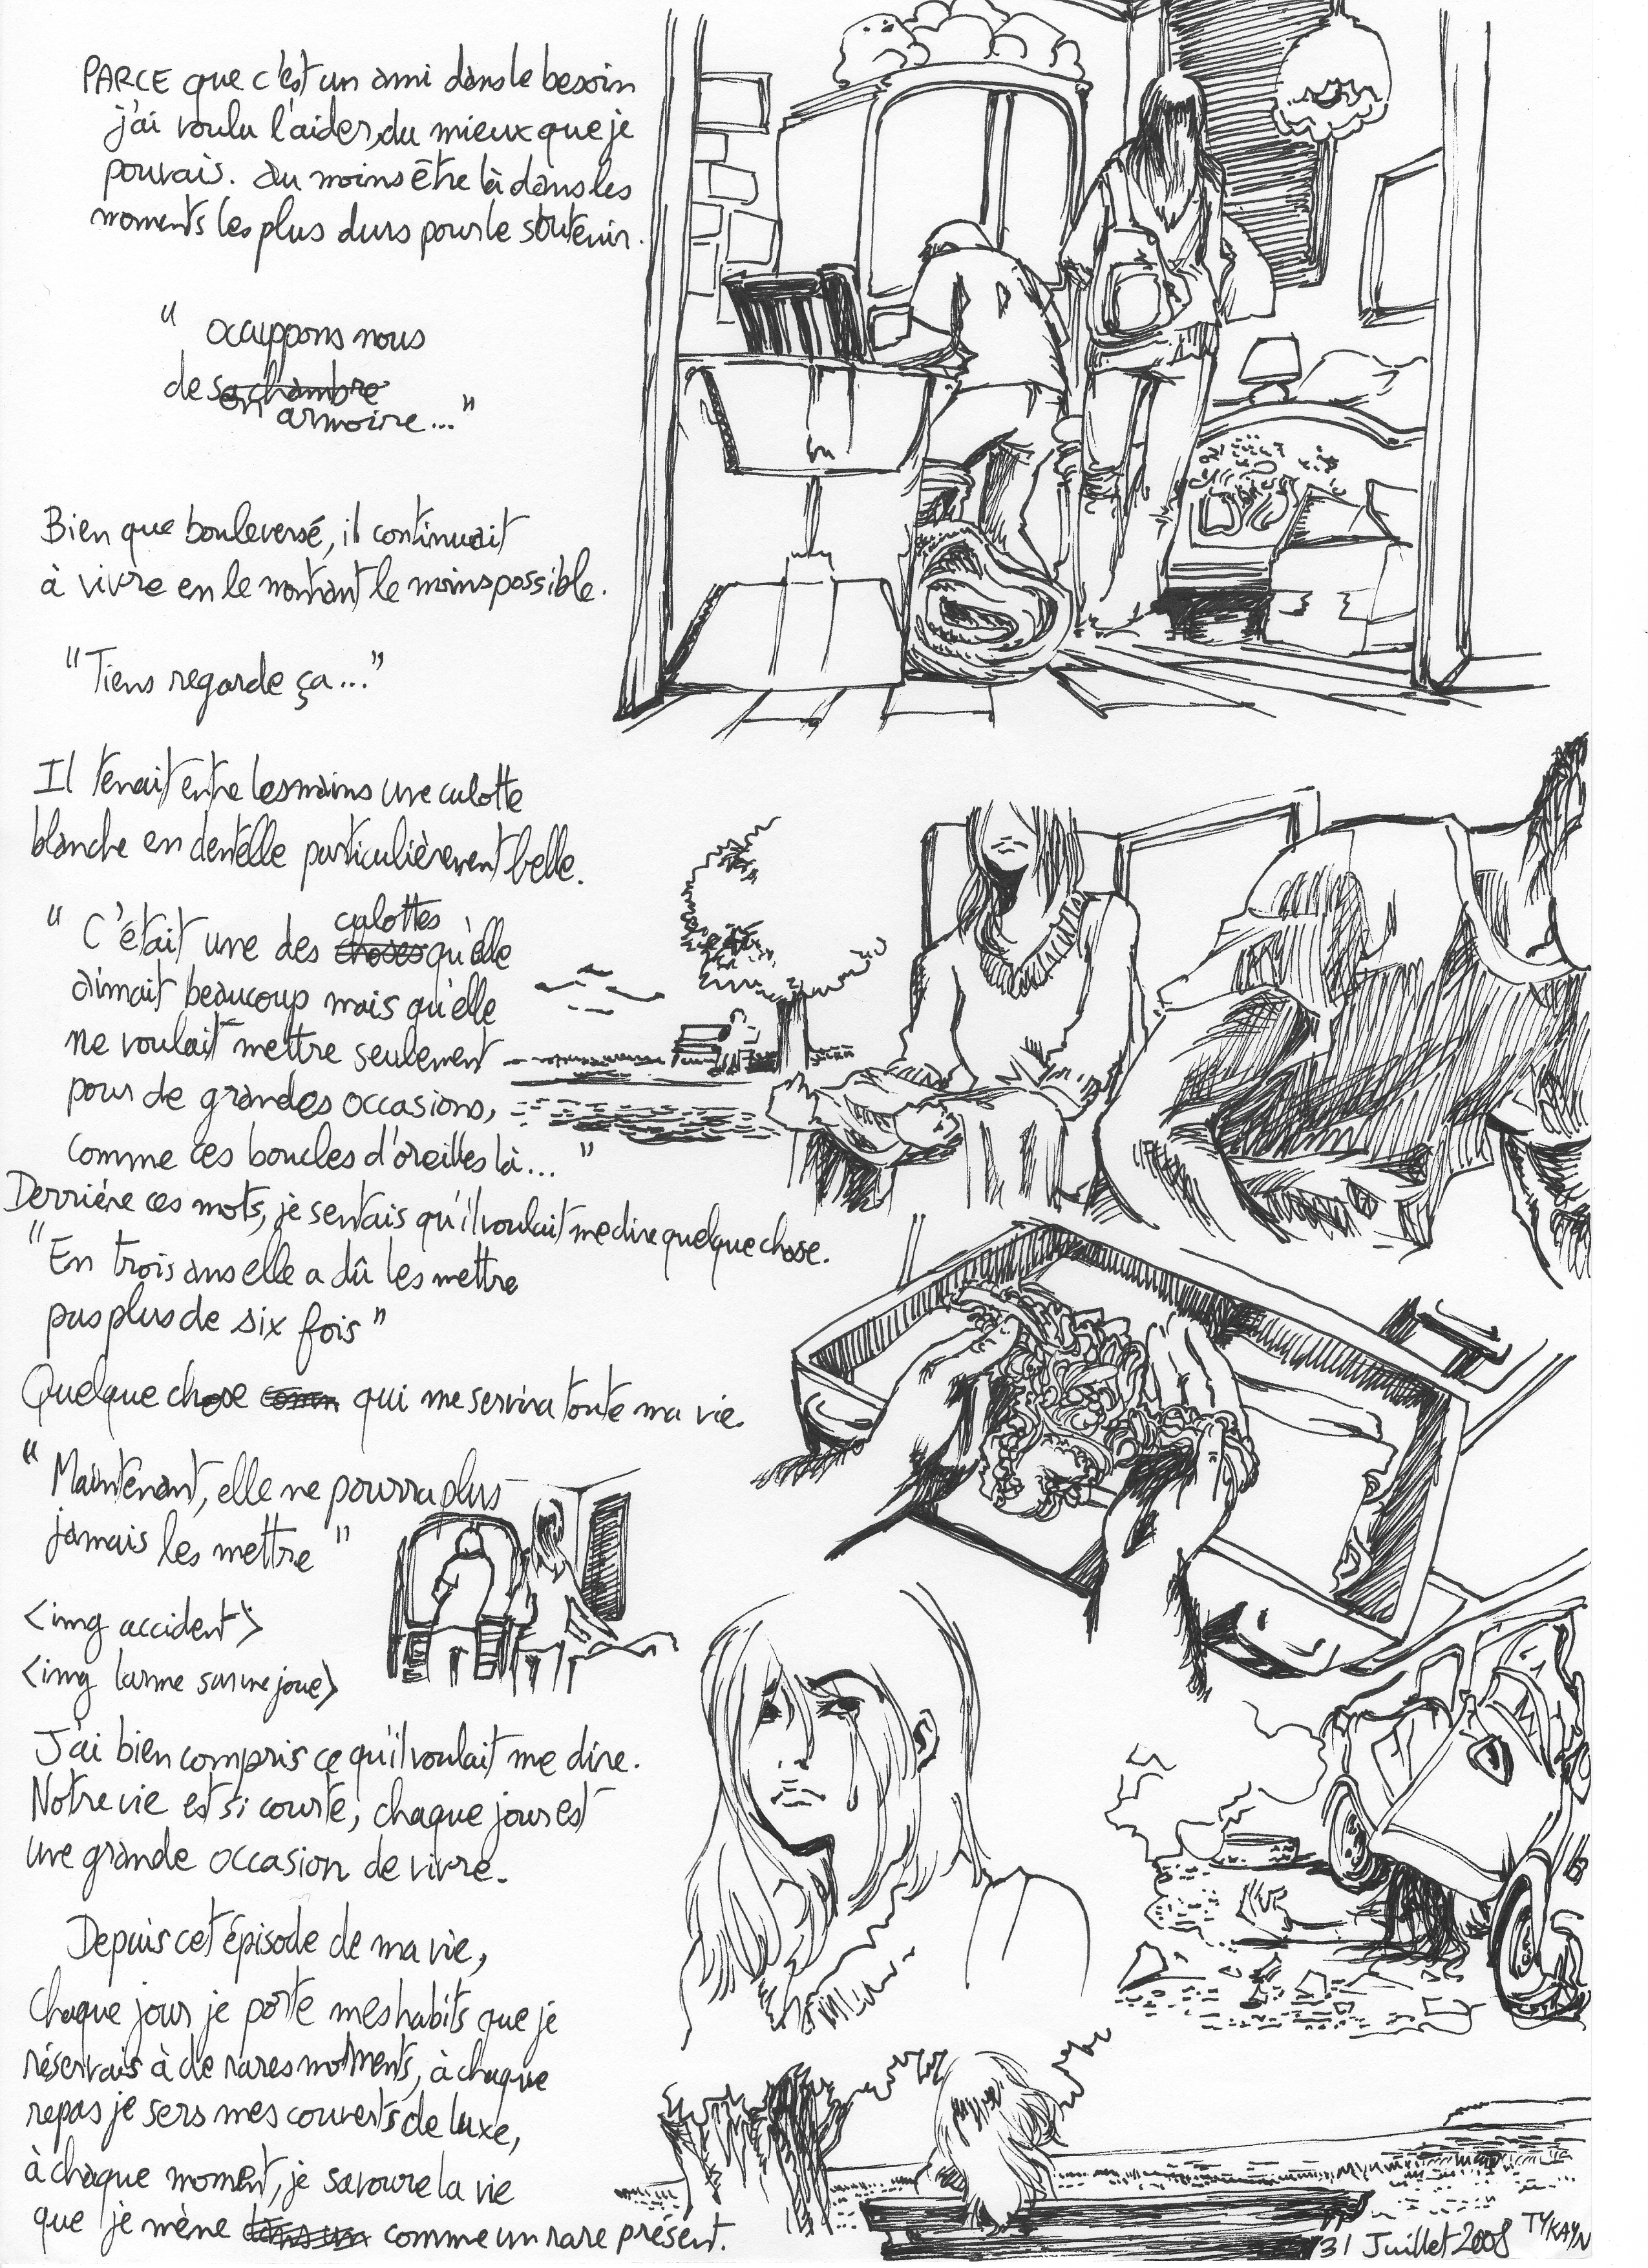 PARCE que c'est un ami dans le besoin
j'ai voulu l'aider, du mieux que je
pouvais. au moins être là dans les
moments les plus durs pour le soutenir.
" occuppons nous
de sa chambre
on armoire..."
Bien que bouleversé, il continuait
à vivre en le montrant le moins possible.
"Tiens regarde ça..."
Il tenait entre les mains une culotte
blanche en dentelle particulièrement belle.
culottes
" C'était une des choses qu'elle
aimait beaucoup mais qu'elle
ne voulait mettre seulement
pour de grandes occasions,
comme ces boucles d'oreilles là... "
Derrière ces mots, je sentais qu'il voulait me dire quelque chose.
"En trois ans elle a dû les mettre
pas plus de six fois"
Quelque chose qui me servira toute ma vie.
" Maintenant, elle ne pourra plus
jamais les mettre "
<img accident>
<img larme sur une joue>
J'ai bien compris ce qu'il voulait me dire.
Notre vie est si courte, chaque jour est
une grande occasion de vivre.
Depuis cet épisode de ma vie,
chaque jour je porte mes habits que je
réservais à de rares moments, à chaque
repas je sers mes couverts de luxe,
à chaque moment, je savoure la vie
que je mène comme un rare présent.
31 Juillet 2008 TYKAYN